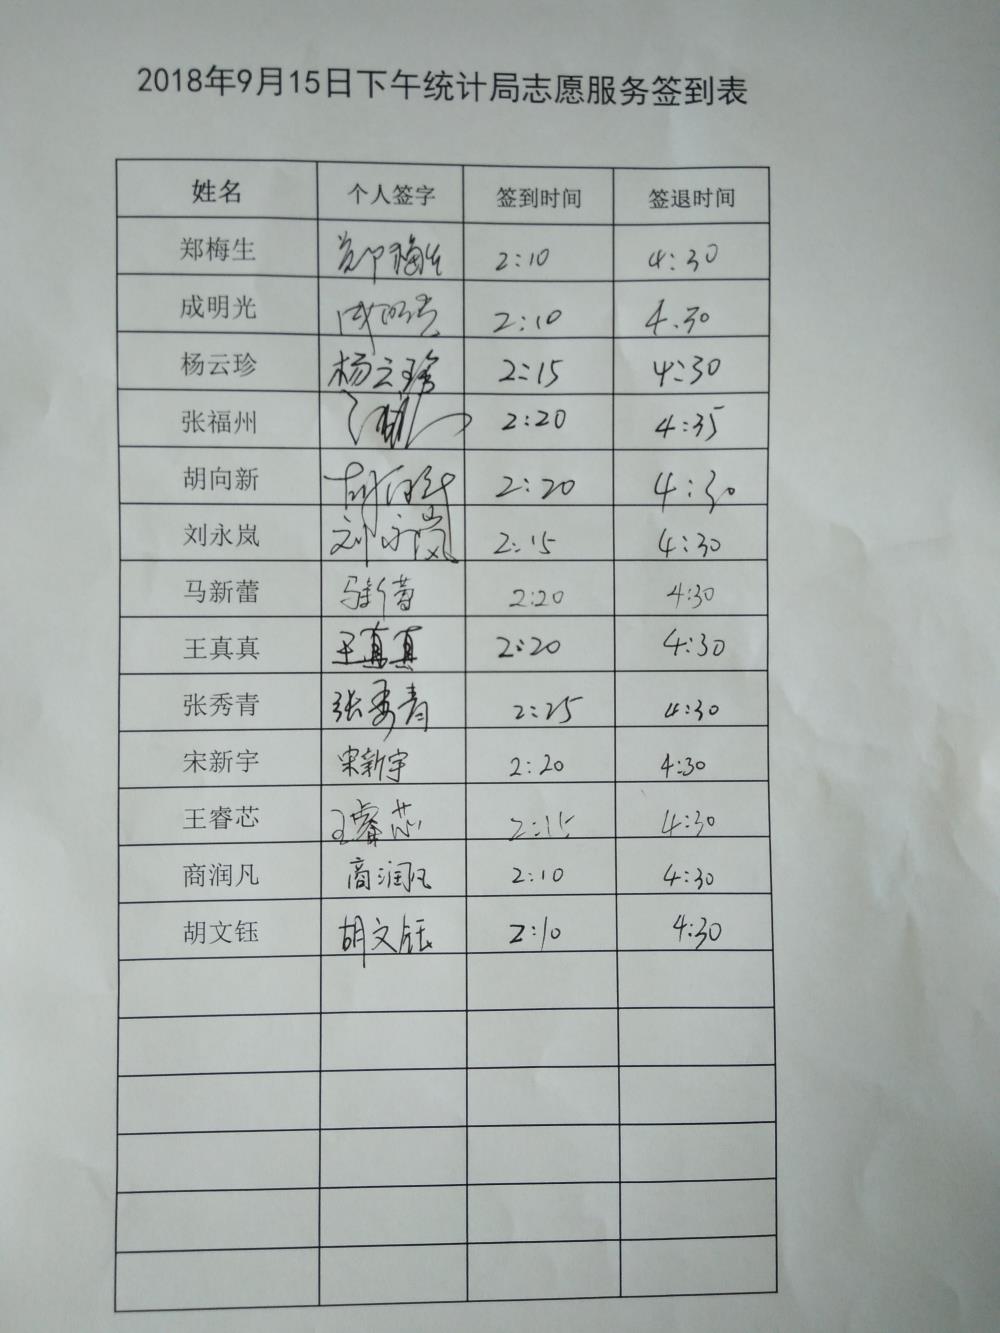 2018年9月15日下午统计局志愿服务签到表
姓名 个人签字 签到时间 签退时间
郑梅生 郑梅生 2:10 4:30
成明光 成明光 2:10 4.30
杨云珍 杨云珍 2:15 4:30
张福州 2:20 4:35
胡向新 胡向新 2:20 4:30
刘永岚 刘永岚 2:15 4:30
马新蕾 马新蕾 2:20 4:30
王真真 王真真 2:20 4:30
张秀青 张秀青 2:25 4:30
宋新宇 宋新宇 2:20 4:30
王睿芯 王睿芯 2:15 4:30
商润凡 商润凡 2:10 4:30
胡文钰 胡文钰 2:10 4:30